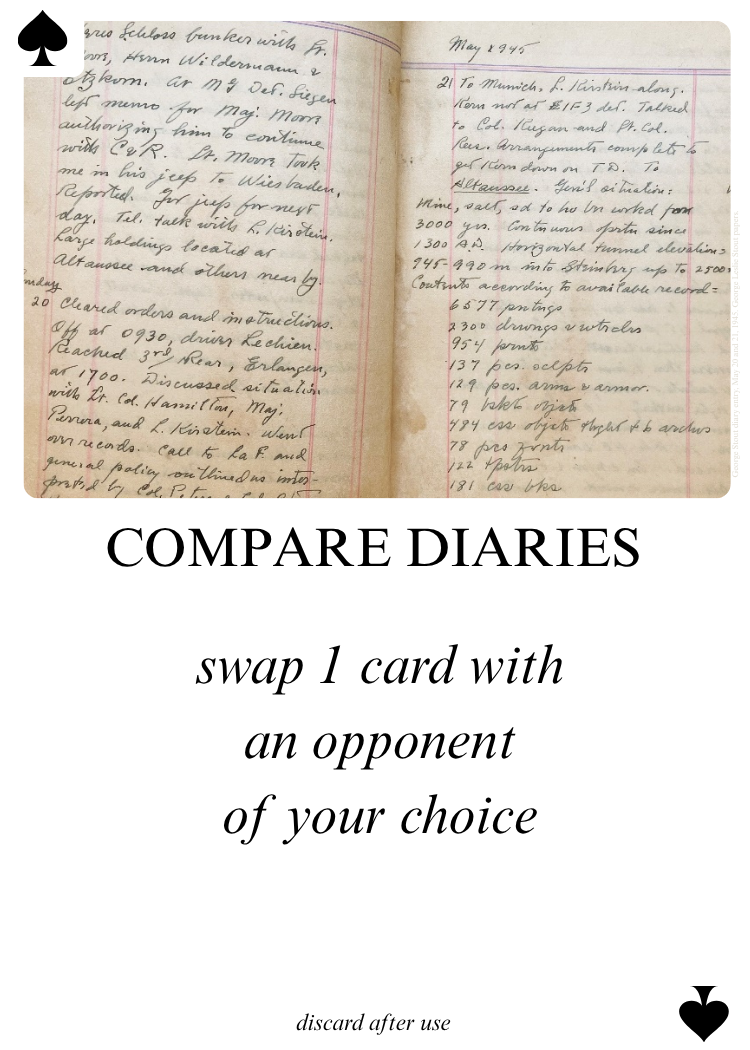 Schloss bunker with Lt.
Moore, Herrn Wildermann &
Etzkorn. At MG Det. Siegen
left memo for Maj. Moore
authorizing him to continue
with C&R. Lt. Moore took
me in his jeep to Wiesbaden.
Reported. Got jeep for next
day. Tel. talk with L. Kirstein.
Large holdings located at
Altaussee and others near by.
20 Cleared orders and instructions.
Off at 0930, driver Lechien.
Reached 3rd Rear, Erlangen,
at 1700. Discussed situation
with Lt. Col. Hamilton, Maj.
Perrera, and L. Kirstein. Went
over records. Call to La F. and
general policy outlined as inter-
preted by Col.
May 1945
21 To Munich. L. Kirstein along.
Korn not at E1F3 det. Talked
to Col. Keegan and Lt. Col.
Arrangements complete to
get Korn down on TD. To
Altaussee. Gen'l situation:
Mine, salt, sd to ho bn workd for
3000 yrs. Continuous opertn since
1300 A.D. Horizontal tunnel elevation=
945-990 m into Steinberg up to 2500=
Contents according to available record=
6577 pntngs
2300 drwngs & wtrclrs
954 prnts
137 pcs. sclpts
129 pcs. arms & armor.
79 bskt objts
484 css objts thght to b archvs
78 pcs frnts
122 tpstrs
181 css bks
COMPARE DIARIES
swap 1 card with
an opponent
of your choice
discard after use